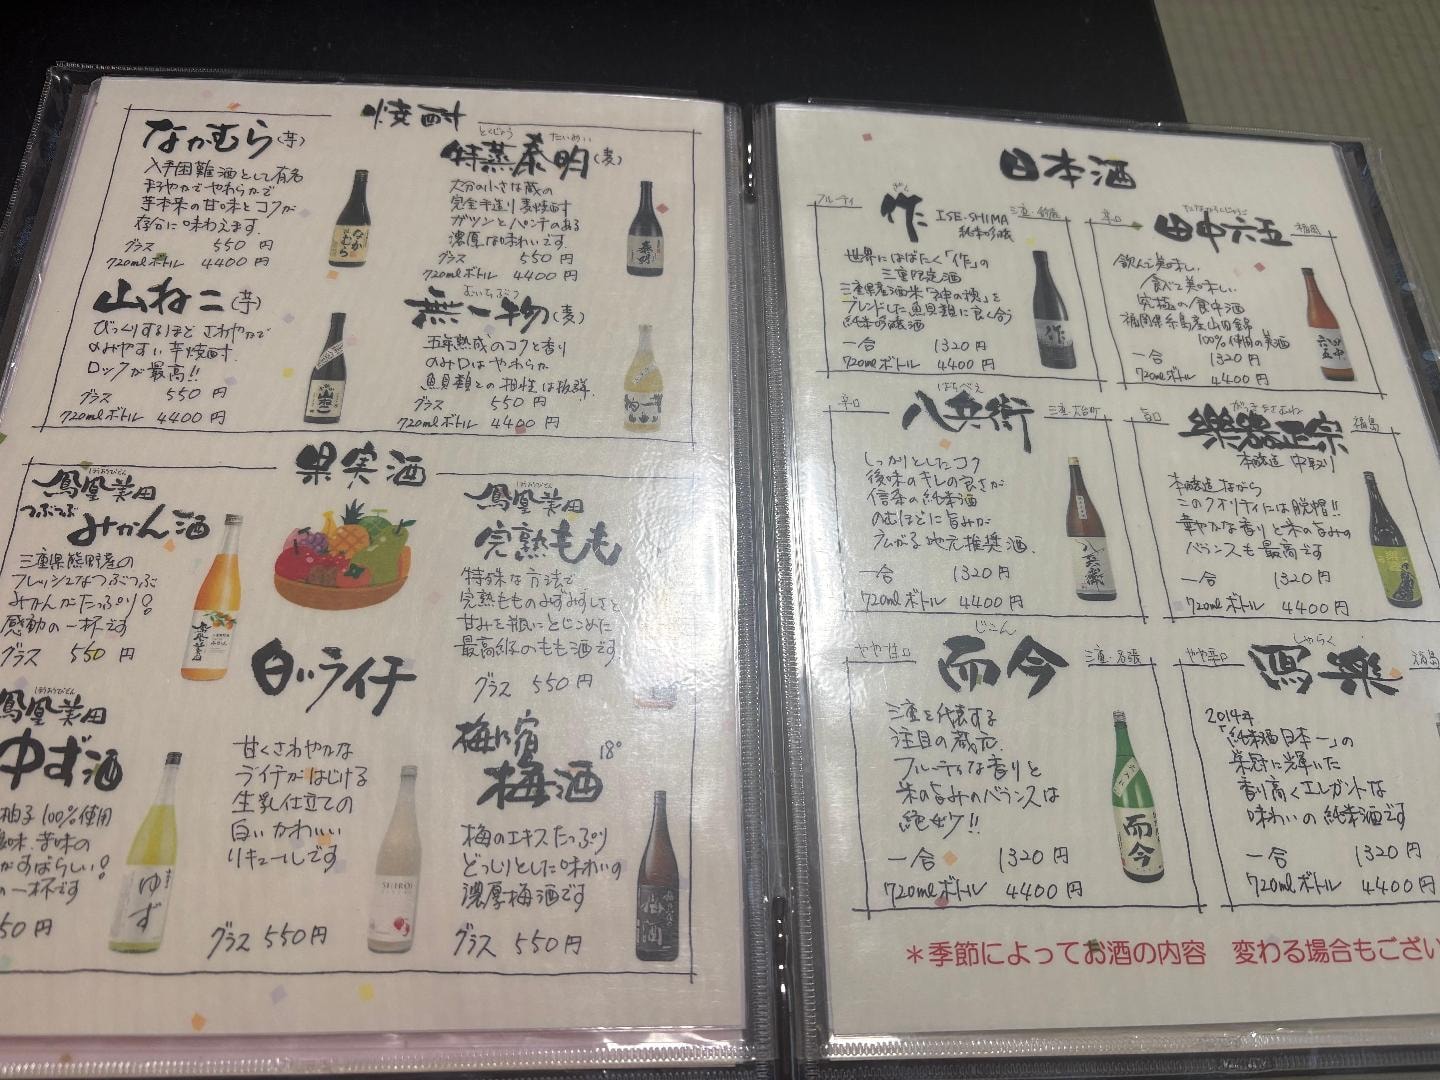 焼酎
なかむら(芋)
入手困難酒として有名
まろやかでやわらかで
芋本来の甘味とコクが
存分に味わえます.
グラス 550円
720mlボトル 4400円
とくじょう たいめい
特蒸泰明(麦)
大分の小さな蔵の
完全手造り麦焼酎
ガツンとパンチのある
濃厚な味わいです.
グラス 550円
720mlボトル 4400円
山ねこ(芋)
びっくりするほど さわやかで
のみやすい芋焼酎.
ロックが最高!!
グラス 550円
720mlボトル 4400円
むいちぶつ
無一物(麦)
五年熟成のコクと香り
のみ口はやわらか
魚貝類との相性は抜群.
グラス 550円
720mlボトル 4400円
果実酒
ほうおうびでん
鳳凰美田
つぶつぶ
みかん酒
三重県熊野産の
フレッシュなつぶつぶ
みかんがたっぷり!
感動の一杯です
グラス 550円
ほうおうびでん
鳳凰美田
完熟もも
特殊な方法で
完熟もものみずみずしさと
甘みを瓶にとじこめた
最高級のもも酒です
グラス 550円
ほうおうびでん
鳳凰美田
ゆず酒
柚子100%使用
酸味、苦味の
がすばらしい!
の一杯です
50円
白いライチ
甘くさわやかな
ライチがはじける
生乳仕立ての
白い かわいい
リキュールです
グラス 550円
梅乃宿 18°
梅酒
梅のエキスたっぷり
どっしりとした味わいの
濃厚梅酒です
グラス 550円
日本酒
フルーティ
ざく
作 ISE-SHIMA
純米吟醸
三重・鈴鹿
世界にはばたく「作」の
三重限定酒
三重県産酒米「神の穂」を
ブレンドした魚貝類に良く合う
純米吟醸酒
一合 1320円
720mlボトル 4400円
辛口
たなかろくじゅうご
田中六五
福岡
飲んで美味しい
食べて美味しい
究極の食中酒
福岡県糸島産山田錦
100%使用の美酒
一合 1320円
720mlボトル 4400円
辛口
はちべえ
八兵衛
三重・大台町
しっかりとしたコク
後味のキレの良さが
信条の純米酒
のむほどに旨みが
広がる地元推奨酒.
一合 1320円
720mlボトル 4400円
旨口
がっきまさむね
樂器正宗
福島
本醸造 中取り
本醸造ながら
このクオリティには脱帽!!
華やかな香りと米の旨みの
バランスも最高です
一合 1320円
720mlボトル 4400円
やや甘口
じこん
而今
三重・名張
三重を代表する
注目の蔵元.
フルーティな香りと
米の旨みのバランスは
絶妙!!
一合 1320円
720mlボトル 4400円
やや辛口
しゃらく
寫樂
福島
2014年
「純米酒日本一」の
栄冠に輝いた
香り高くエレガントな
味わいの純米酒です
一合 1320円
720mlボトル 4400円
＊季節によってお酒の内容 変わる場合もござい